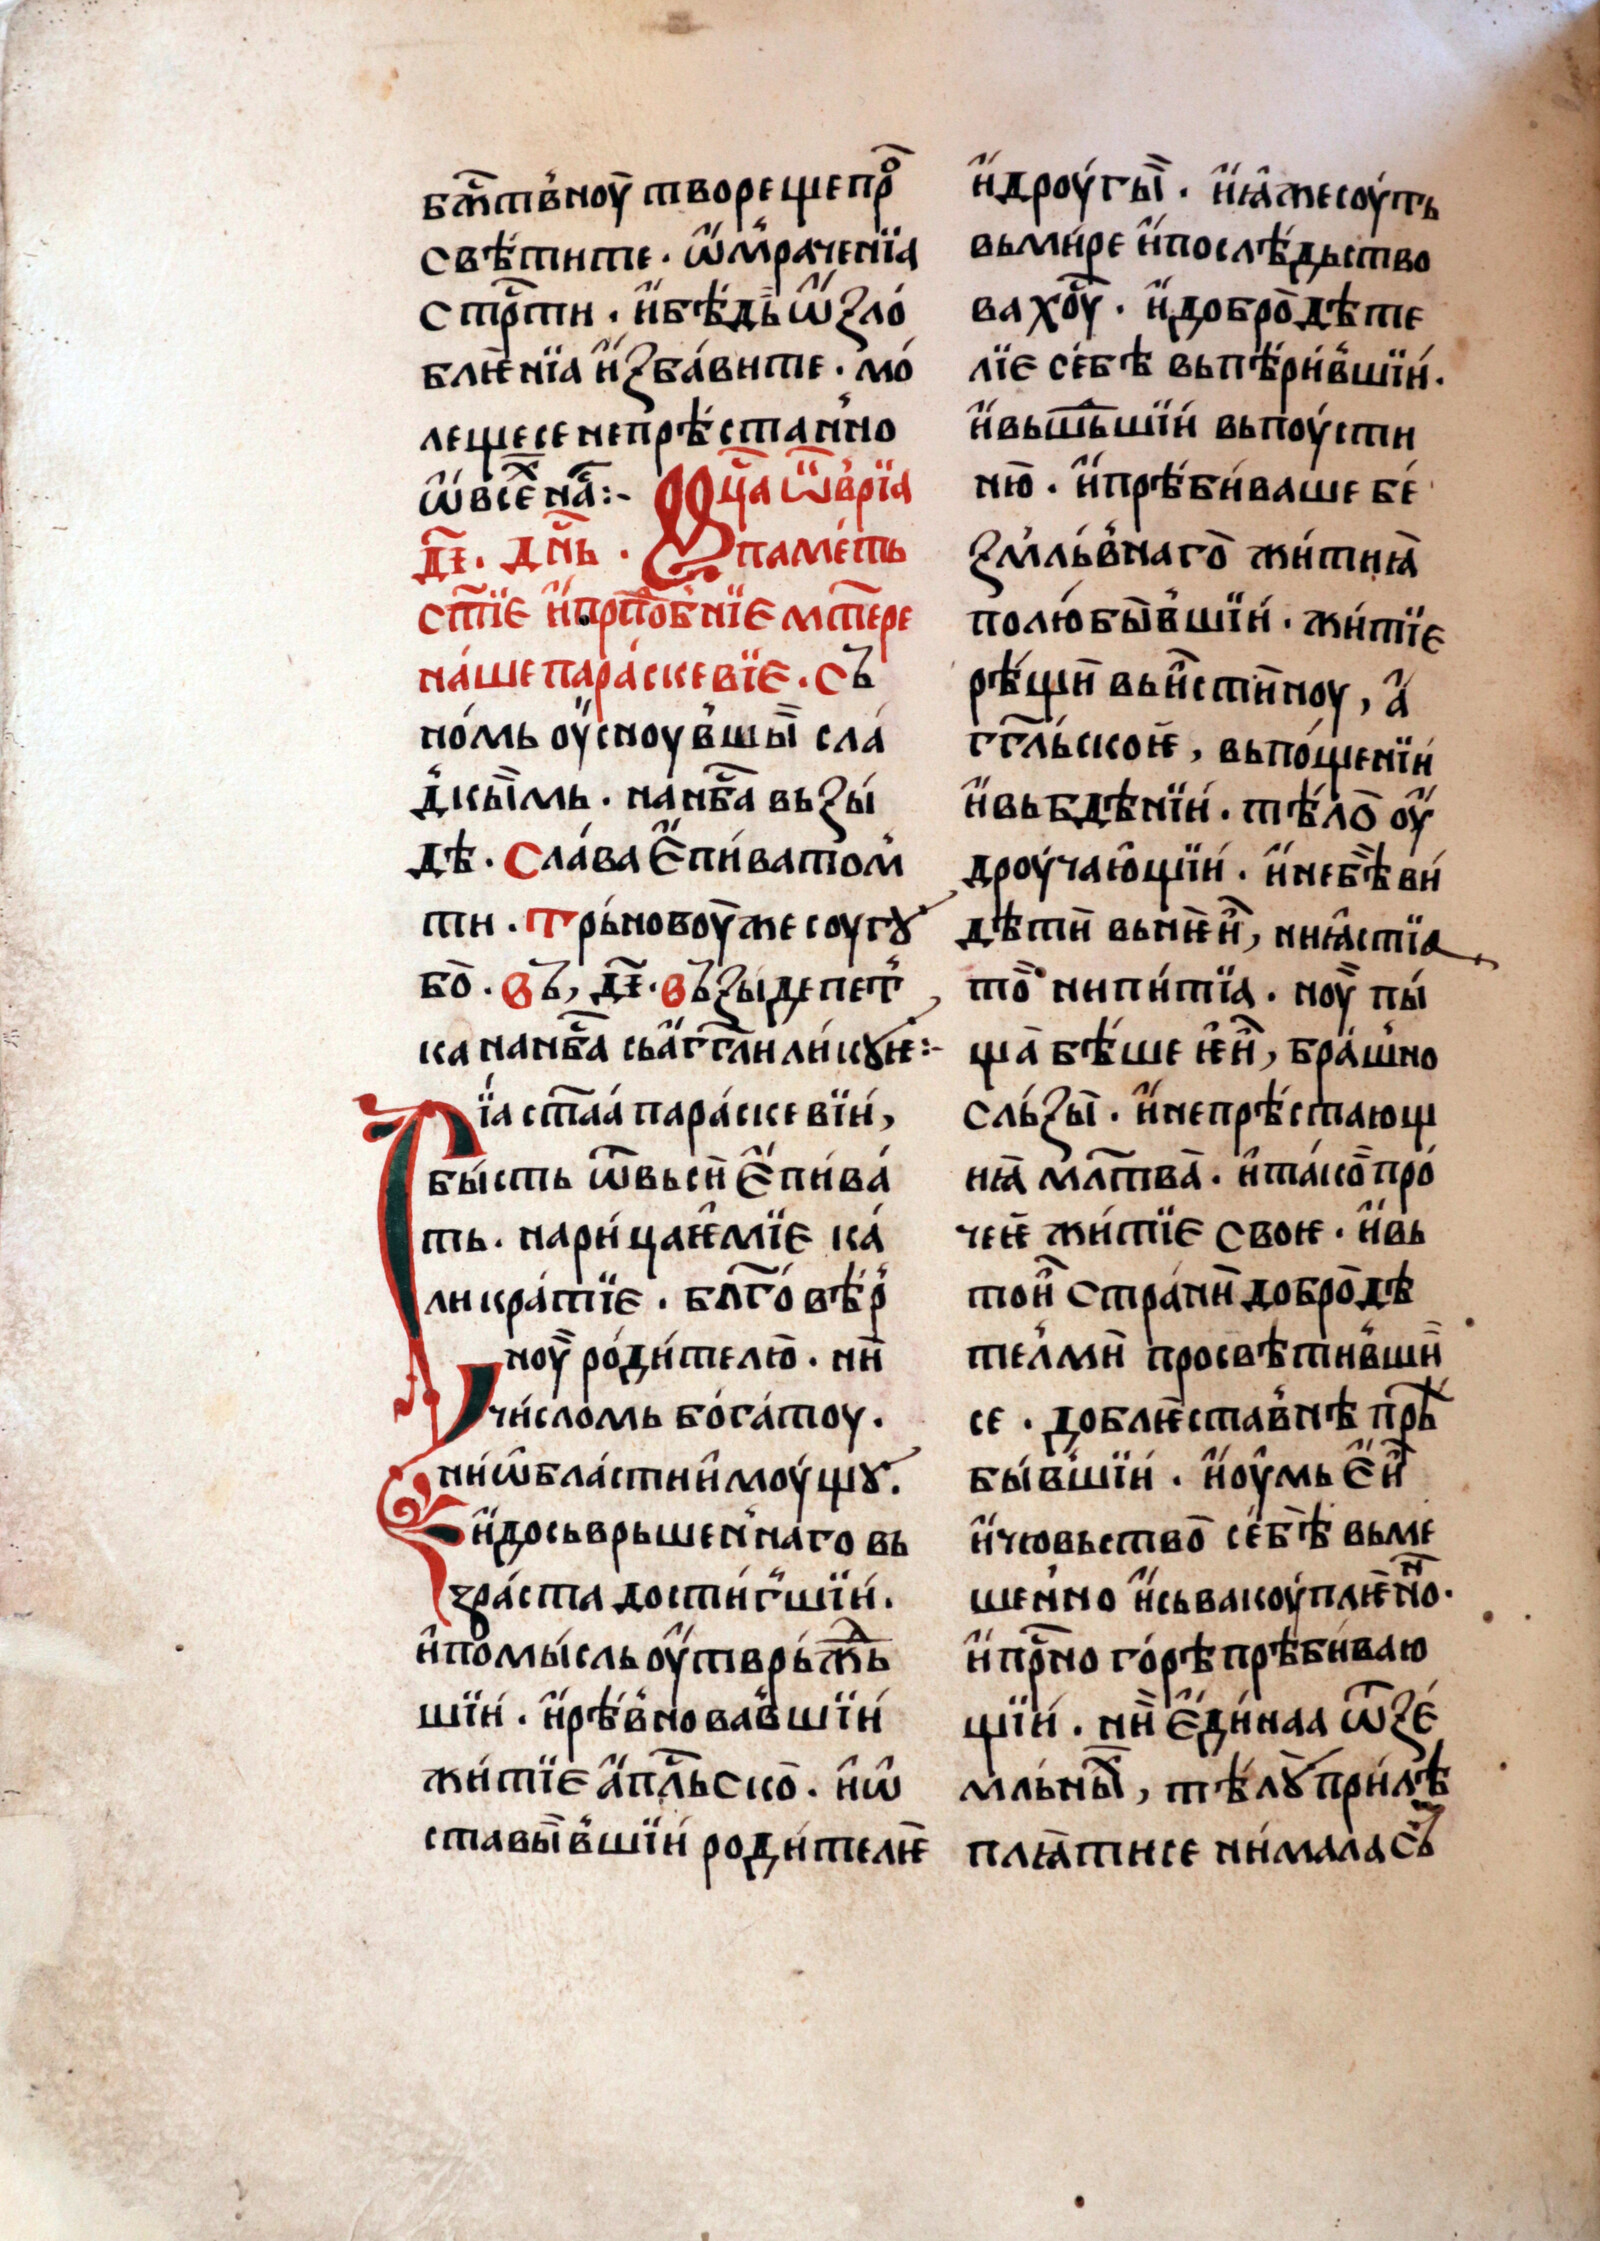 бжⷭ҇твⷩ҇оу творещепрⷪ҇
свѣтите · ѿмраченїа
стрⷭ҇ти · и҆бѣдь ѿ ꙁло
блѥнїа и҆ꙁбавите · мо
лещесе непрѣстанно
ѡ҆всеⷯ на́ⷭ :-
Мⷭ҇ца ѿⷦ҇врїа
д҃ı · дн҃ь · паметь
стїе҃ и҆прпⷣобнїе мт҃ере
нашепараскевїе · съ
номь оу҆сноувшїи сла
дкыⷨмь · нанб҃а вьꙁы
дѣ · слава е҆пиватом
ти · трьновоуже соугꙋ
бо · въ, д҃ı · въꙁыдепет
ка нанб҃а сьагг҃ли ликꙋѥ :-
Сїа ст҃аа параскевїи,
бысть ѿвьси е҆пива
ть · нарицаѥмїе ка
ликратїе · блг҃овѣр
ноу родителю · ни
числомь богатоу ·
ниѡбластиимоущꙋ ·
и҆досьврьшеннаго вь
ꙁраста достигшїи ·
и҆помысль оу҆тврьжⷣь
шїи · и҆рѣвновавшїи
житїе а҆пⷭ҇льско · и҆ѡ
ставывшїи родителѥ
и҆дроугы · и҆ꙗжесоуть
вьмире и҆послѣдьство
ва хоу҃ · и҆добродѣте
лїе себѣ вьпѣрившїи ·
и҆вьшⷣьшїи вьпоусти
ню · и҆прѣбиваше бе
ꙁмльвнаго житиꙗ
полюбывшїи · житїе
рѣщи вьи҆стинноу, а҆
гг҃льскоѥ, вьпощенїи
и҆вьбдѣнїи · тѣло оу҆
дроучающїи · и҆небѣ ви
дѣти вьнѥи, ниꙗстїа
то нипитїа · ноу пы
ща бѣше ѥи, брашно
сльꙁы · и҆непрѣстающ
иꙗ млт҃ва · и҆тако про
чеѥ житїе своѥ · и҆вь
тои страни добродѣ
телми просвѣтившїи
се · доблѥставнѣ прⷣѣ
бывшїи · и҆оумь е҆и
и҆чювьство себѣ вьме
шенно и҆сьвакоуплѥнно ·
и҆прⷭ҇но горѣпрѣбиваю
щїи · ни единаа ѿꙁе
мльныⷯ, тѣлꙋ прилѣ
плꙗтисе нималасъ